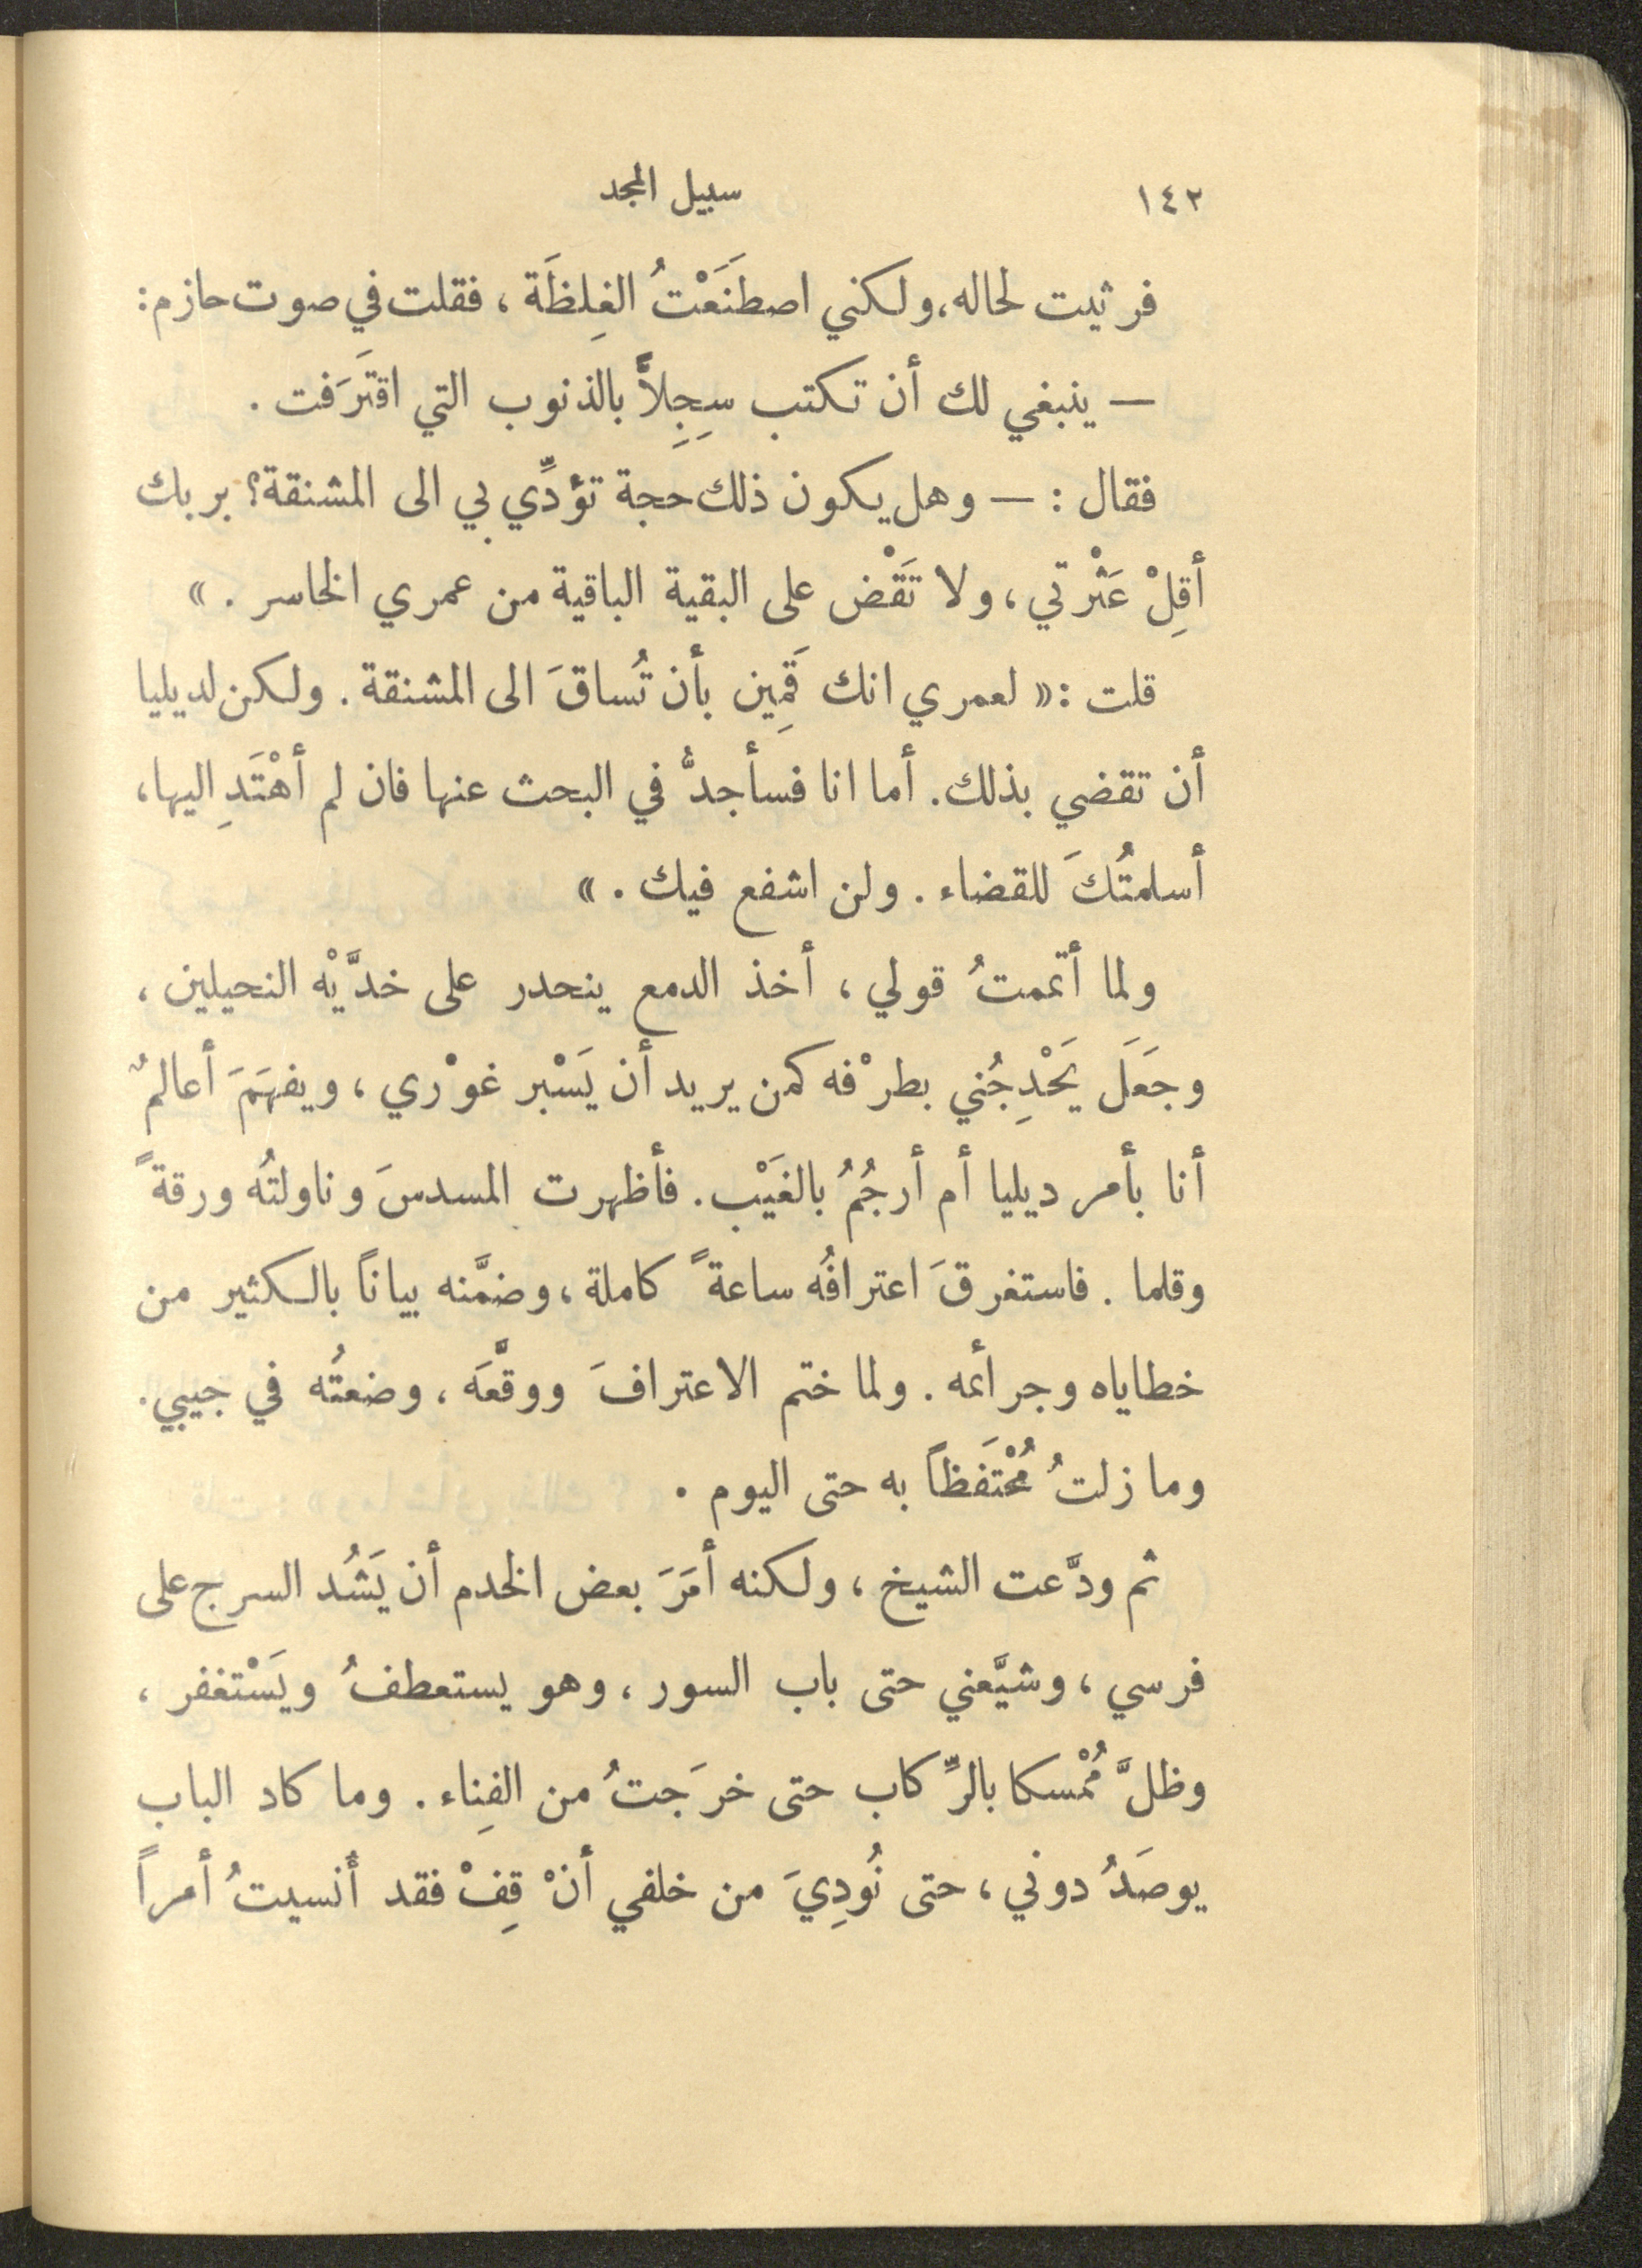 ١٤٢ سبيل المجد
فرثيت لحاله، ولكني اصطنَعْتُ الغِلظَة ، فقلت في صوت حازم:
— ينبغي لك أن تكتب سِجِلاًّ بالذنوب التي اقتَرَفت .
فقال : — وهل يكون ذلك حجة تؤدِّي بي الى المشنقة؟ بربك
أقِلْ عَثْرتي ، ولا تَقْض على البقية الباقية من عمري الخاسر . »
قلت : « لعمري انك قَمِين بأن تُساقَ الى المشنقة . ولكن لديليا
أن تقضي بذلك. أما انا فسأجدُّ في البحث عنها فان لم أهْتَدِ اليها،
أسلمتُكَ للقضاء . ولن اشفع فيك . »
ولما أتممتُ قولي ، أخذ الدمع ينحدر على خدَّيْه النحيلين ،
وجَعَلَ يَحْدِجُني بطرْفه كمن يريد أن يَسْبر غوْري ، ويفهَمَ أعالمٌ
أنا بأمر ديليا أم أرجُمُ بالغَيْب. فأظهرت المسدسَ وناولتُه ورقةً
وقلما . فاستغرقَ اعترافُه ساعةً كاملة ، وضمَّنه بياناً بالكثير من
خطاياه وجرائمه . ولما ختم الاعترافَ ووقَّعَه ، وضعتُه في جيبي.
وما زلتُ مُحْتَفظاً به حتى اليوم .
ثم ودَّعت الشيخ ، ولكنه أمَرَ بعض الخدم أن يَشُد السرج على
فرسي ، وشيَّعني حتى باب السور ، وهو يستعطفُ ويَسْتغفر ،
وظلَّ مُمْسكا بالرِّكاب حتى خرَجتُ من الفِناء . وما كاد الباب
يوصَدُ دوني ، حتى نُودِيَ من خلفي أنْ قِفْ فقد أُنسيتُ أمراً